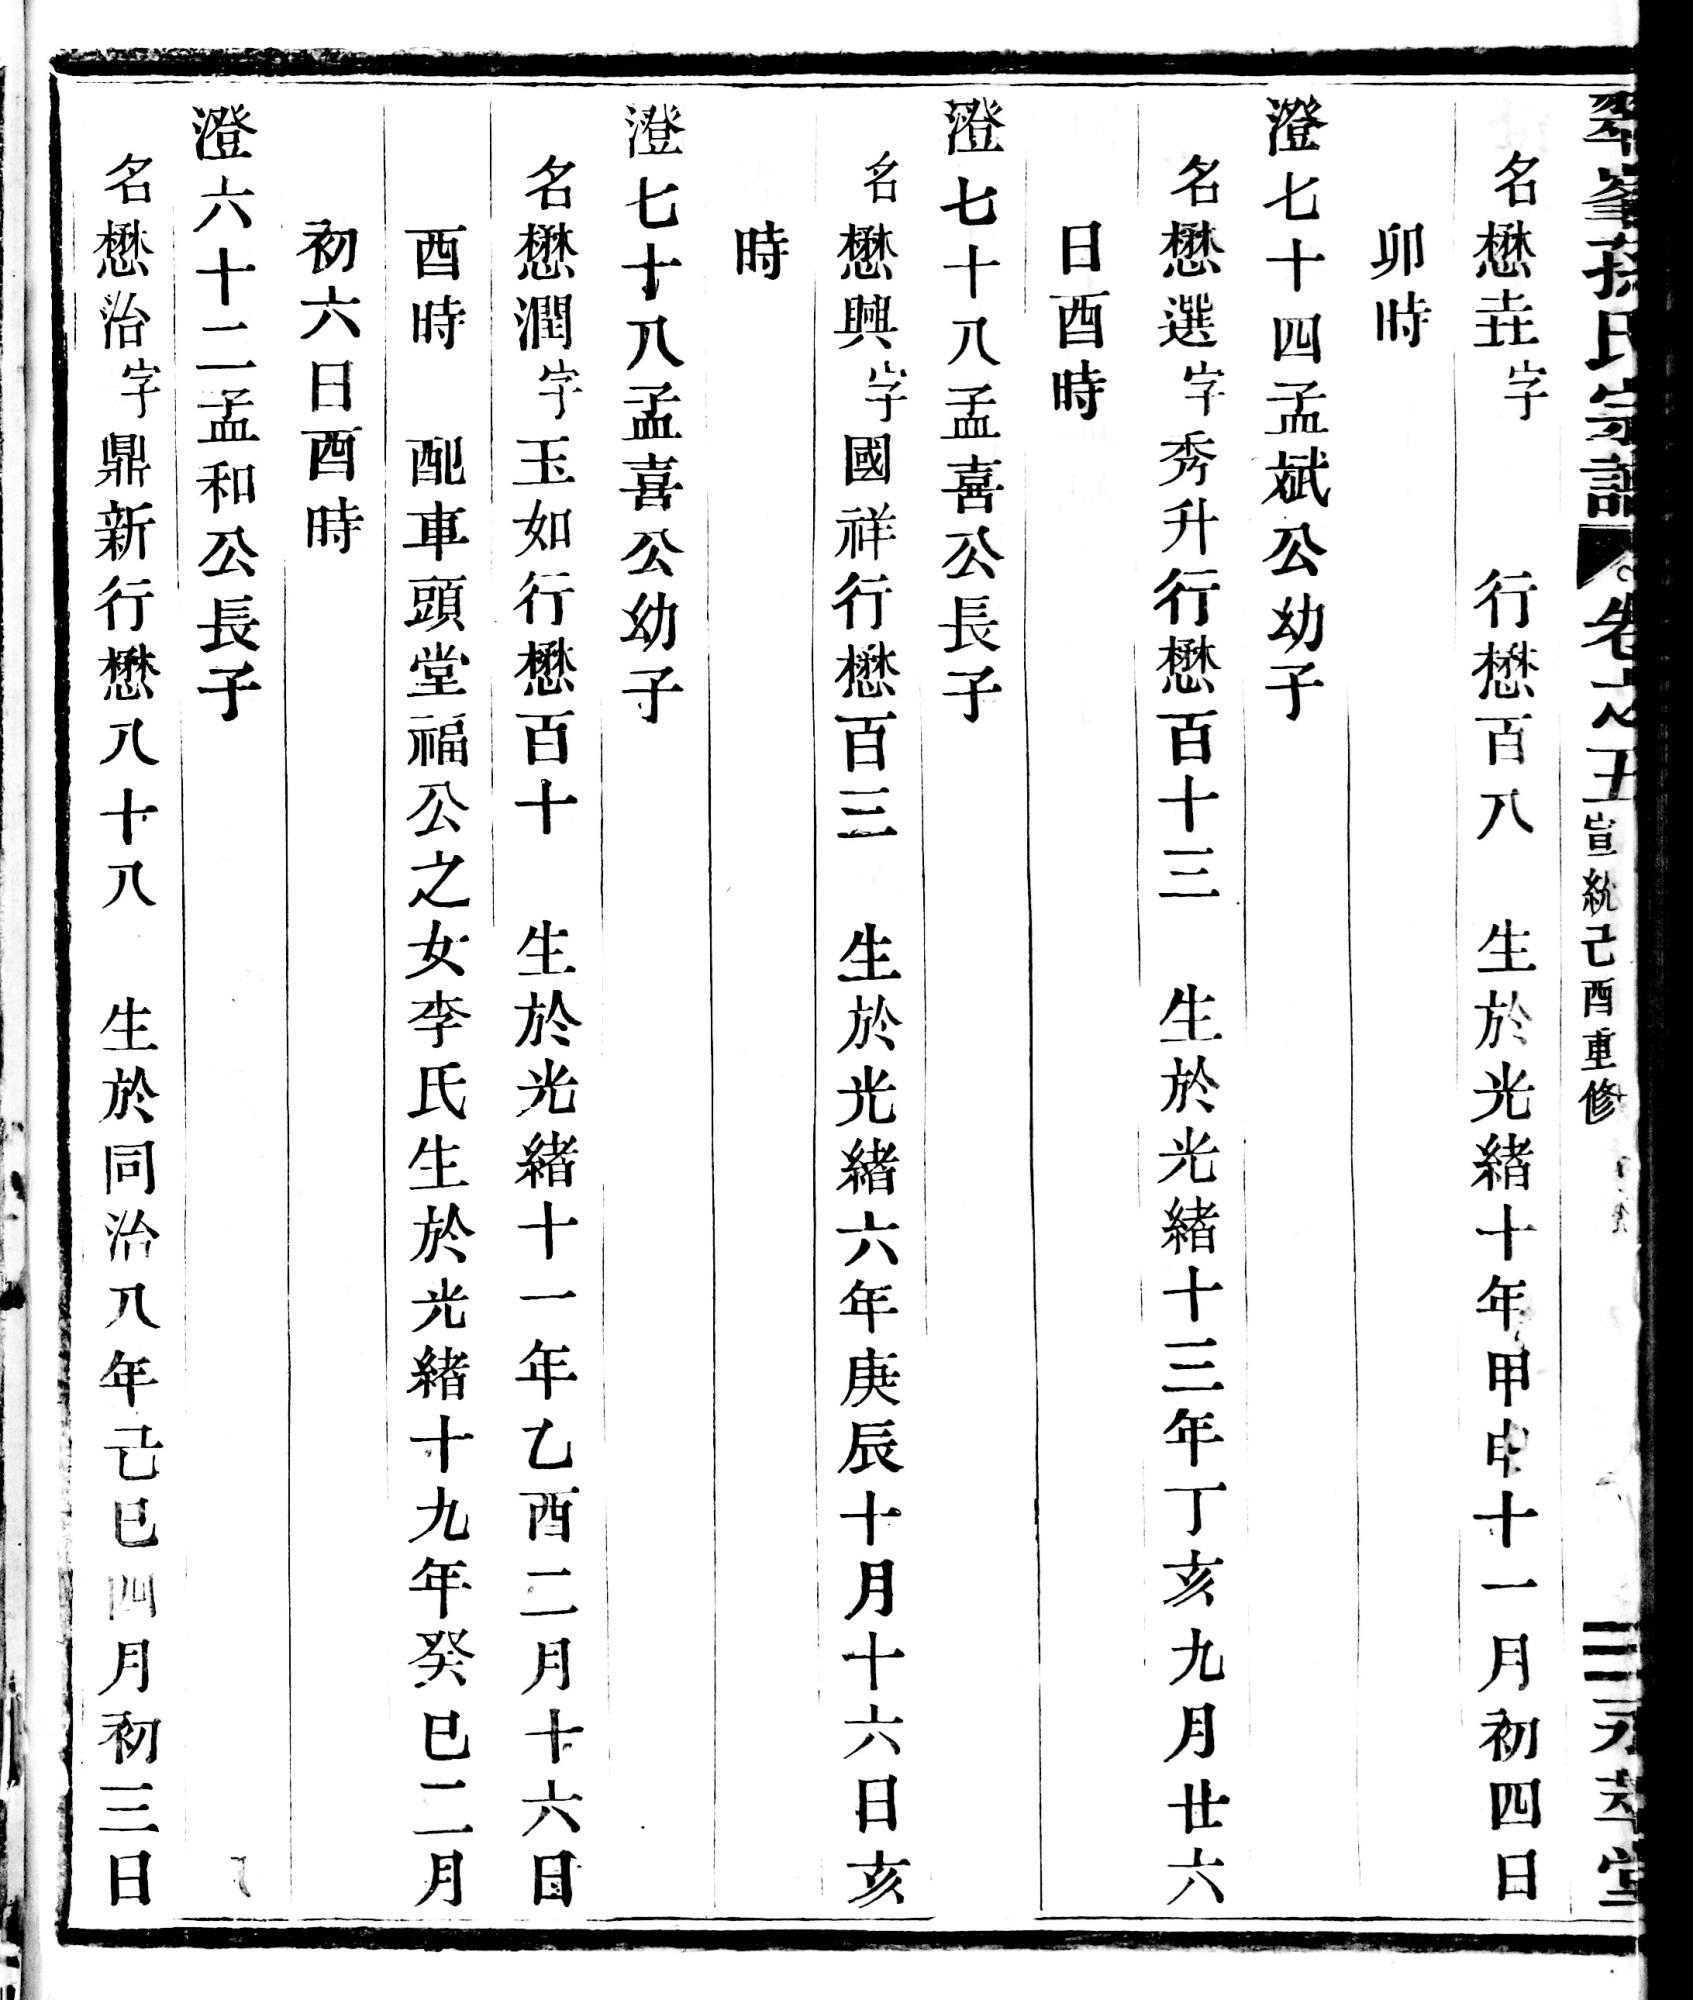 翠峯孫氏宗譜 卷之五 宣統己酉重修 三 永萃堂
名懋垚字 行懋百八 生於光緒十年甲申十一月初四日
卯時
澄七十四孟斌公幼子
名懋選字秀升行懋百十三 生於光緒十三年丁亥九月廿六
日酉時
澄七十八孟喜公長子
名懋興字國祥行懋百三 生於光緒六年庚辰十月十六日亥
時
澄七十八孟喜公幼子
名懋潤字玉如行懋百十 生於光緒十一年乙酉二月十六日
酉時 配車頭堂福公之女李氏生於光緒十九年癸巳二月
初六日酉時
澄六十二孟和公長子
名懋治字鼎新行懋八十八 生於同治八年己巳四月初三日